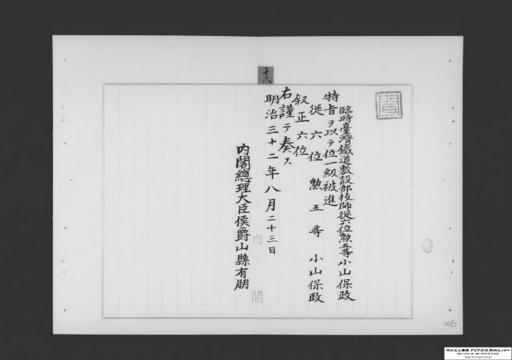 十八
臨時臺灣鐵道敷設部技師從六位勲五等小山保政
特旨ヲ以テ位一級被進
從六位勲五等小山保政
叙正六位
右謹テ奏ス
明治三十二年八月二十三日
内閣總理大臣侯爵山縣有朋
内閣